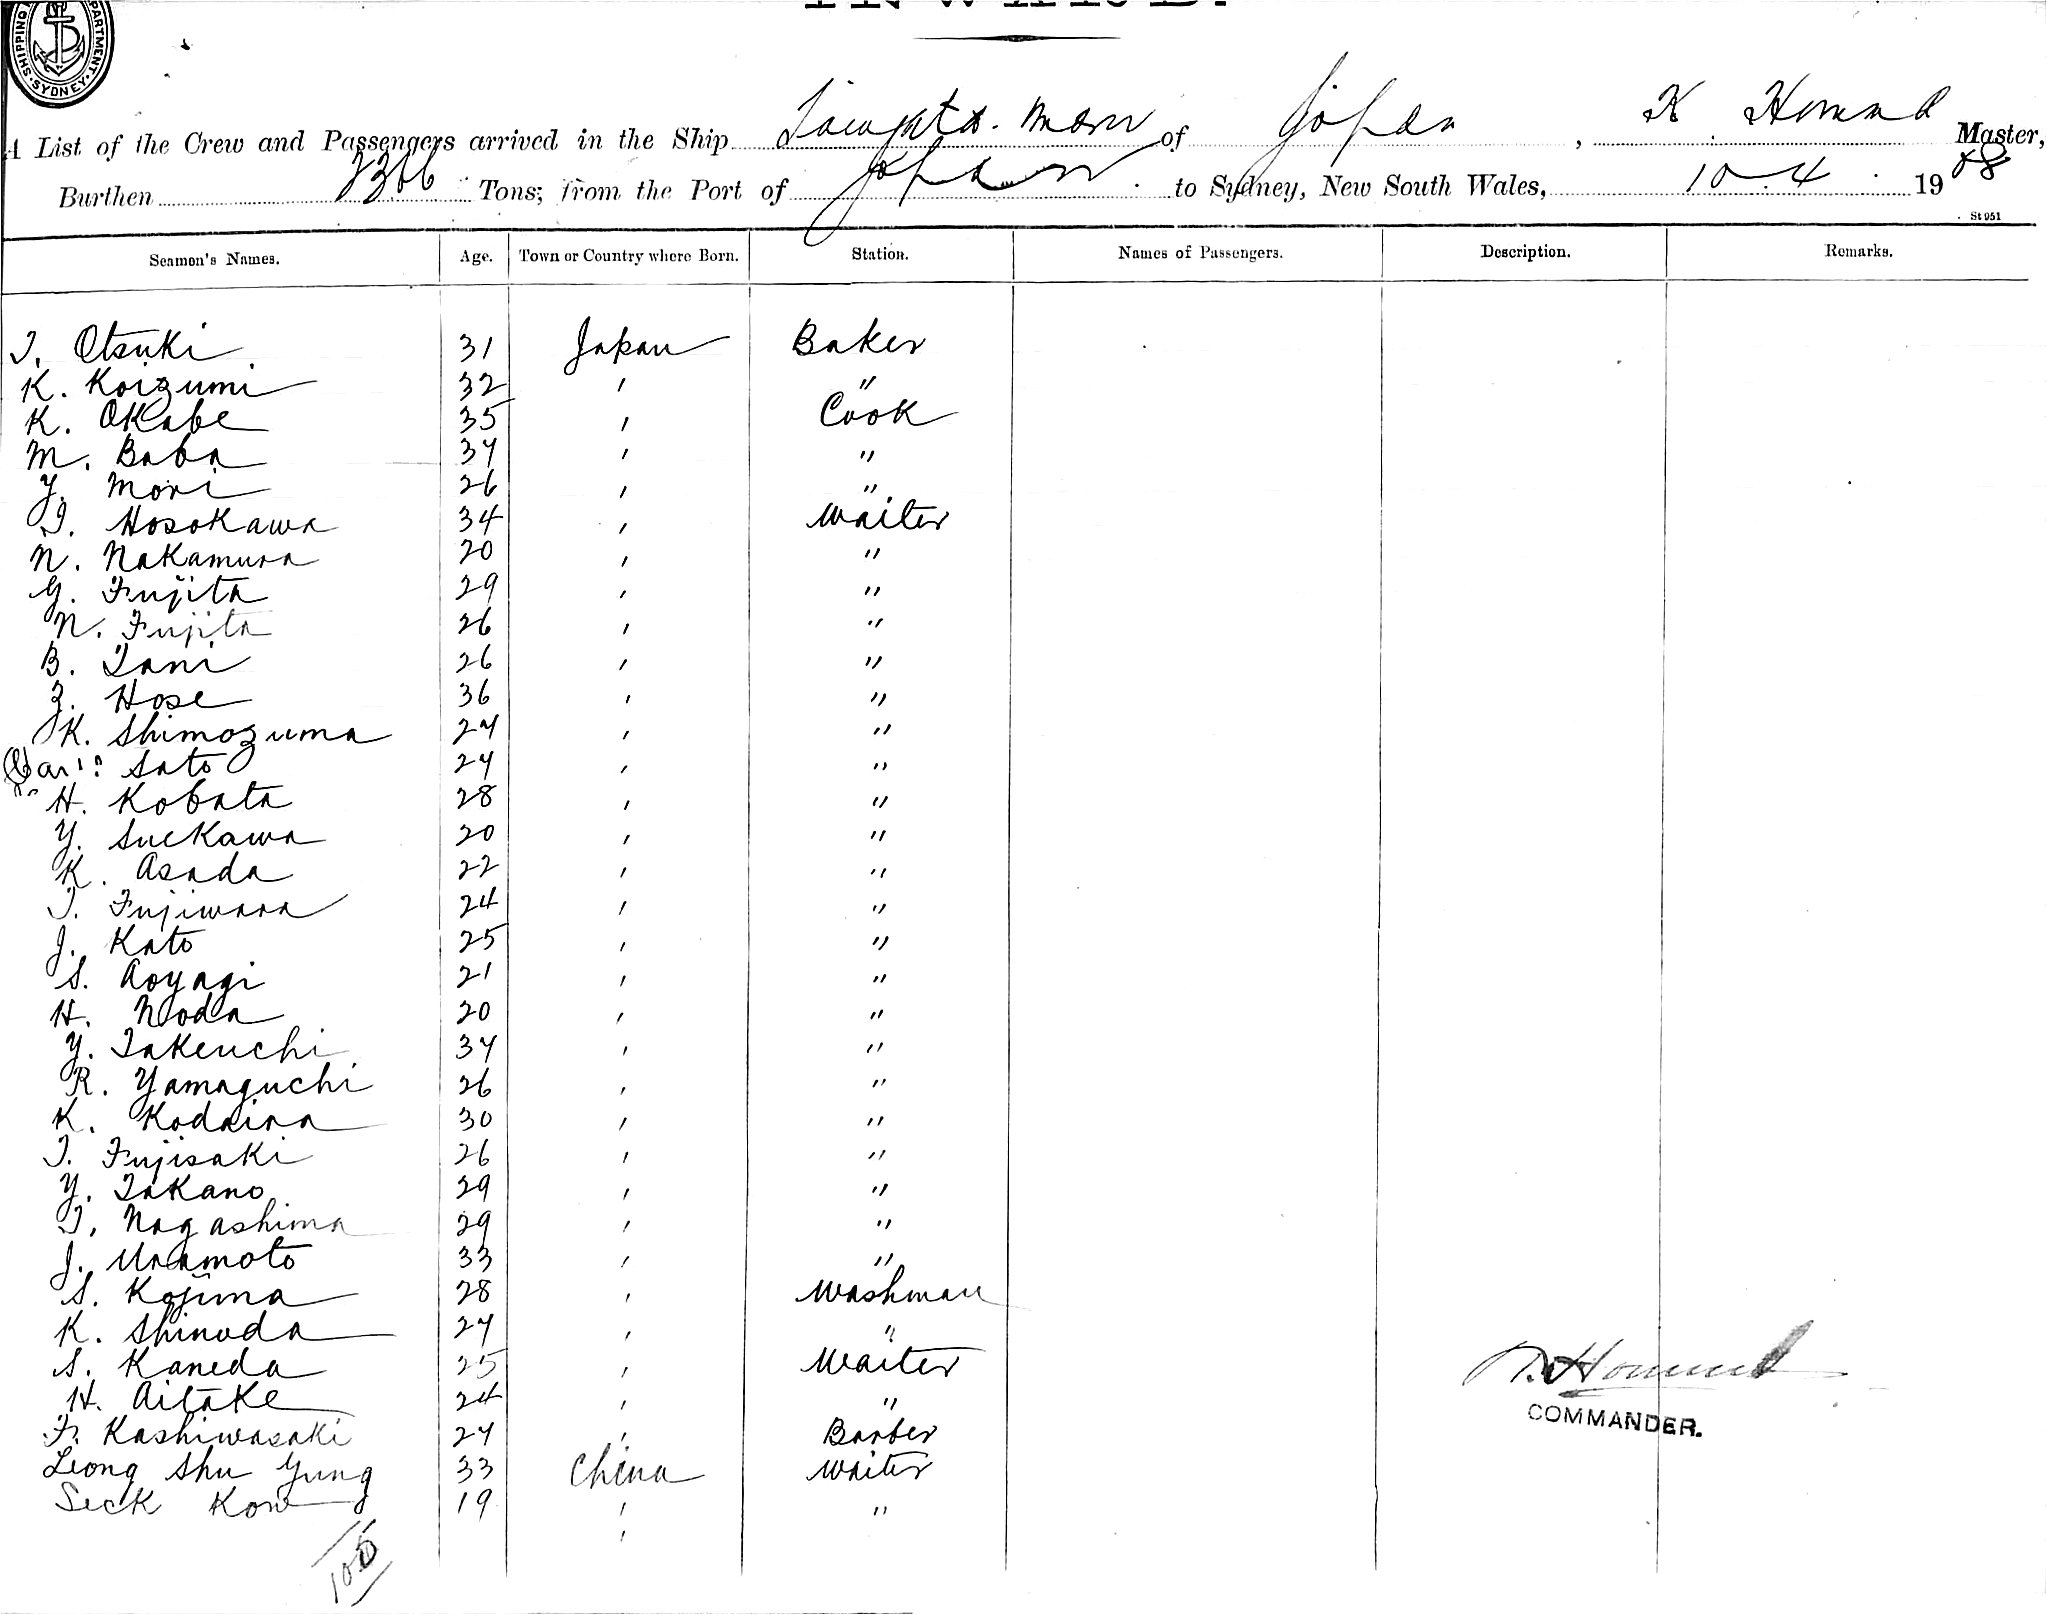 SHIPPING DEPARTMENT SYDNEY
INWARD.
A List of the Crew and Passengers arrived in the Ship Maru of Japan, K Homma Master,
Burthen Tons; from the Port of Japan to Sydney, New South Wales, 10.4. 1908
St 951
Seamen's Names. Age. Town or Country where Born. Station. Names of Passengers. Description. Remarks.
T. Otsuki 31 Japan Baker
K. Koizumi 32 ' "
K. Okabe 35 ' Cook
M. Baba 34 ' "
Y. Mori 26 ' "
T. Hosokawa 34 ' Waiter
N. Nakamura 20 ' "
G. Fujita 29 ' "
N. Fujita 26 ' "
B. Tani 26 ' "
Z. Hose 36 ' "
K. Shimozuma 24 ' "
Sato 24 ' "
H. Kobata 28 ' "
Y. Suekawa 20 ' "
K. Asada 22 ' "
T. Fujiwara 24 ' "
J. Kato 25 ' "
S. Aoyagi 21 ' "
H. Noda 20 ' "
Y. Takeuchi 34 ' "
R. Yamaguchi 26 ' "
K. Kodaira 30 ' "
T. Fujisaki 26 ' "
Y. Takano 29 ' "
T. Nagashima 29 ' "
J. Uramoto 33 ' "
S. Kojima 28 ' Washman
K. Shinoda 24 ' "
S. Kaneda 25 ' Waiter
H. Aitake 24 ' "
F. Kashiwasaki 24 ' Barber
Leong Shu Yung 33 China Waiter
Seck Kow 19 ' "
'
105
K. Homma
COMMANDER.